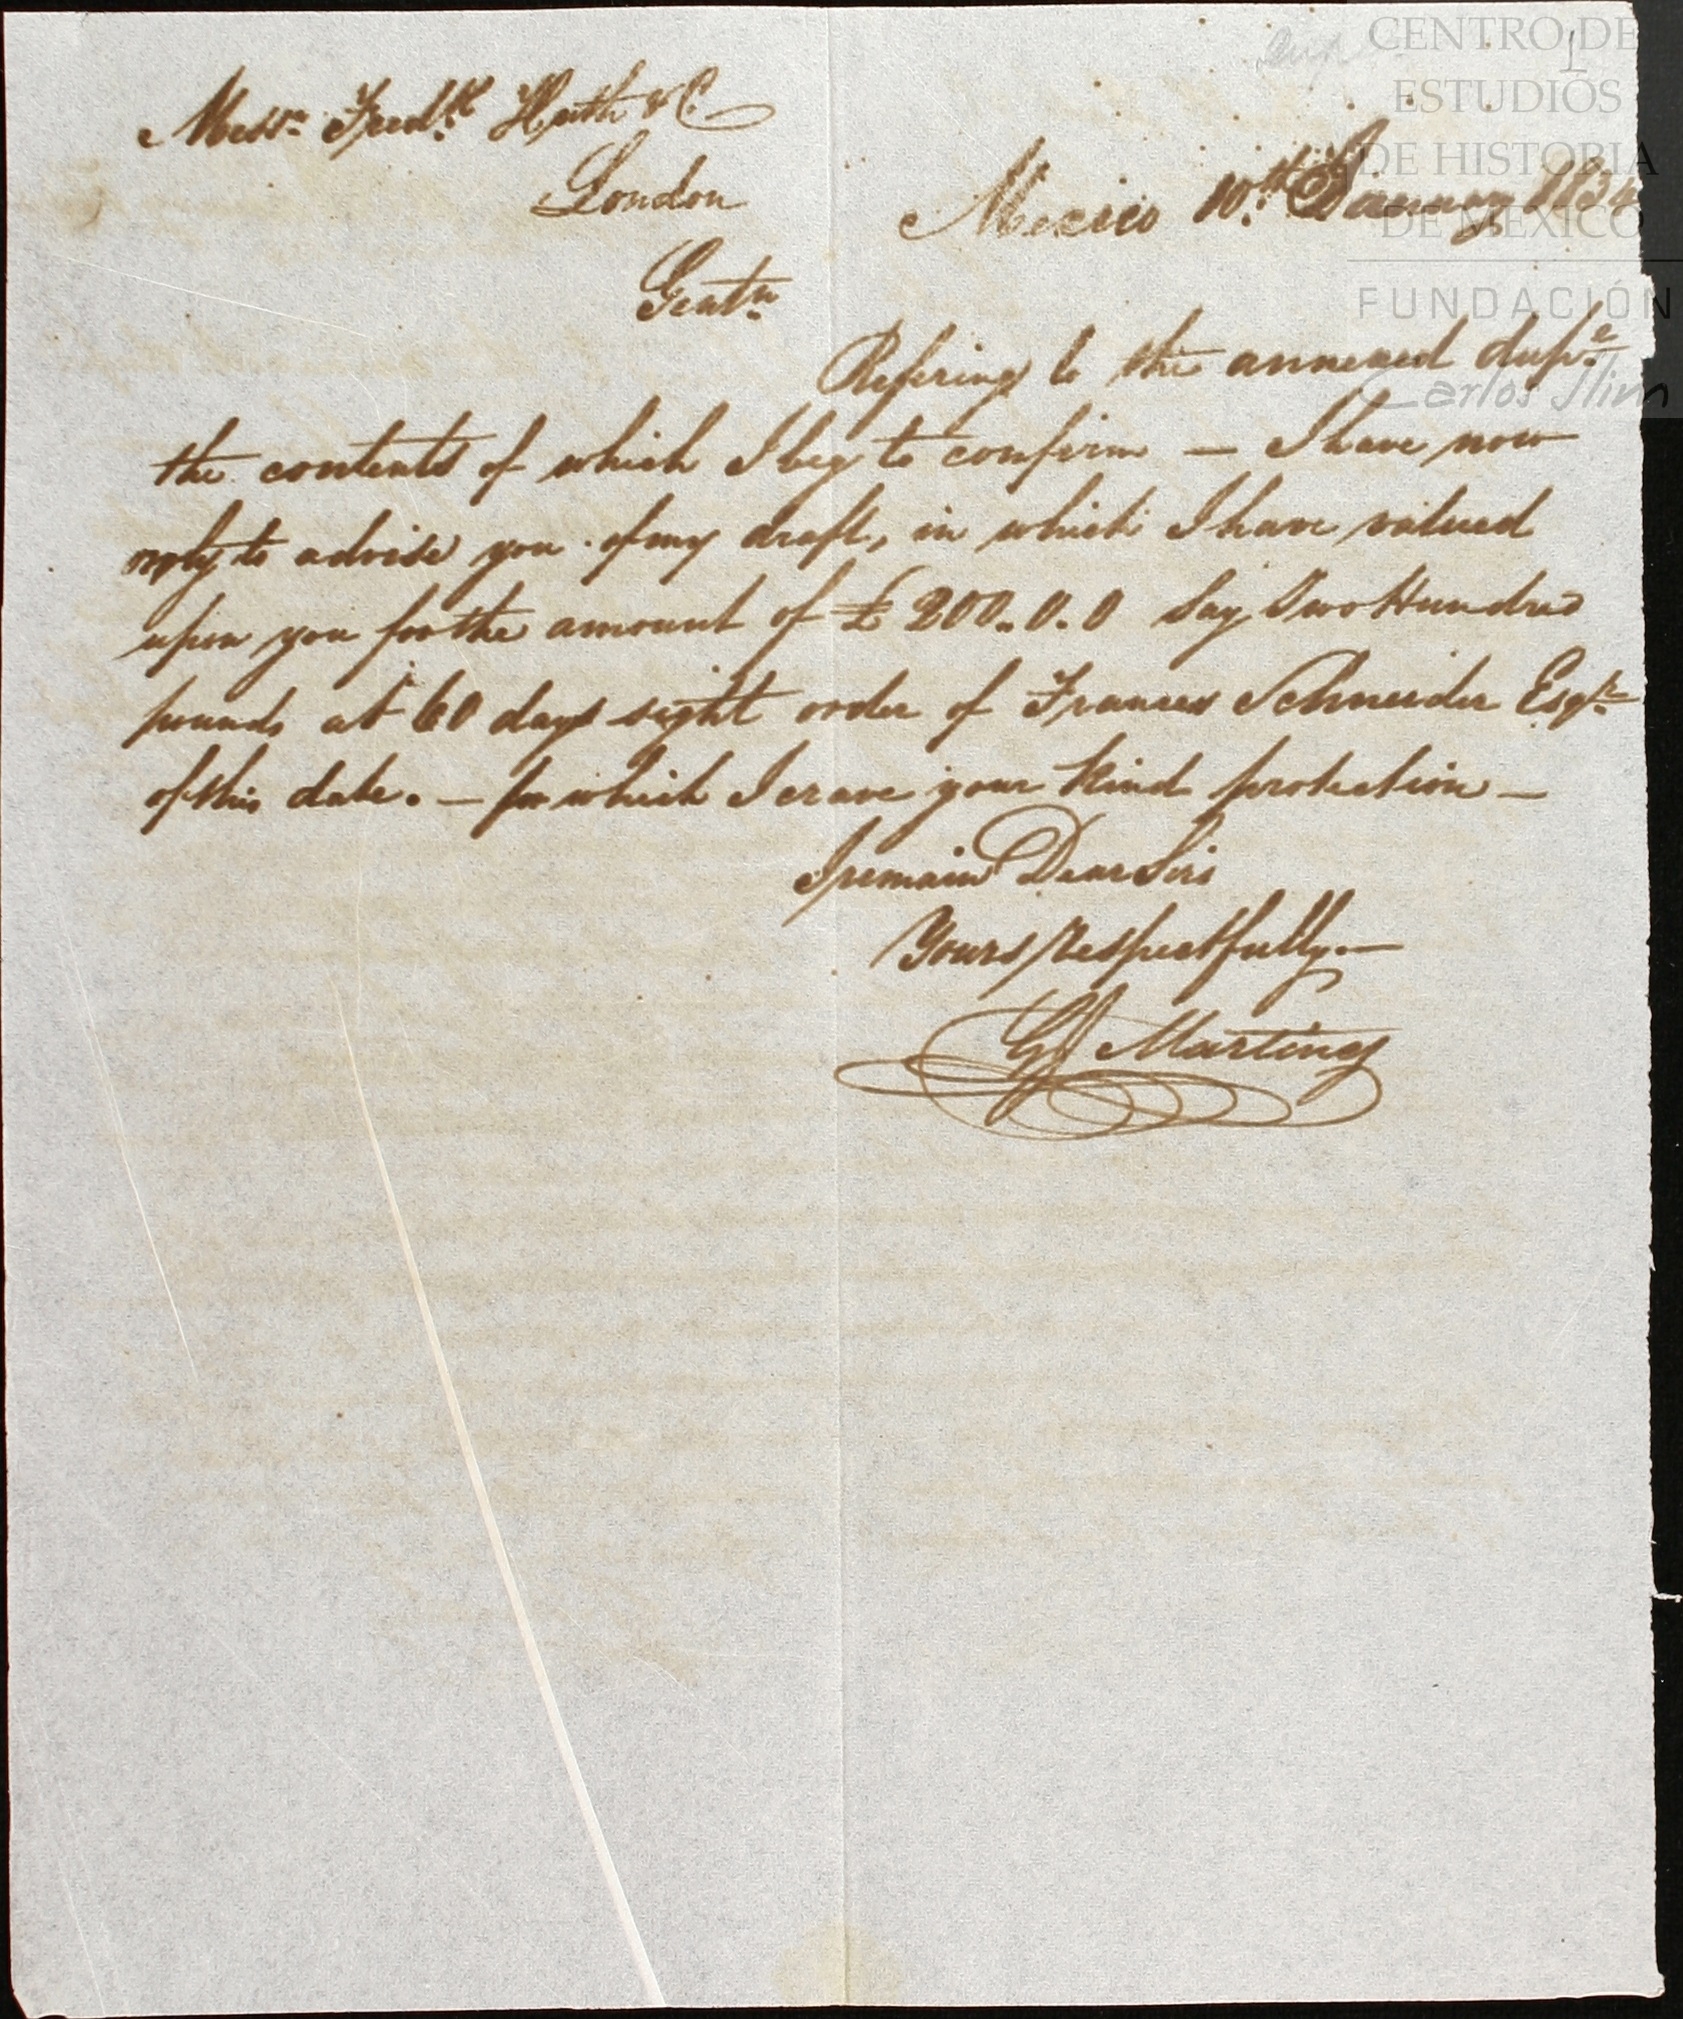 CENTRO DE
ESTUDIOS
DE HISTORIA
DE MEXICO
FUNDACIÓN
Carlos Slim
1
Messrs Fredk Huth & Co
London
Mexico 10th January 1834
Gentn
Refering to the annexed dupte
the contents of which I beg to confirm — I have now
only to advise you of my draft, in which I have valued
upon you for the amount of £ 200.0.0 Say Two Hundred
pounds at 60 days sight order of Frances Schneider Esqr
of this date. — for which I crave your kind protection —
I remain Dear Sirs
Yours respectfully —
GJ Martinez